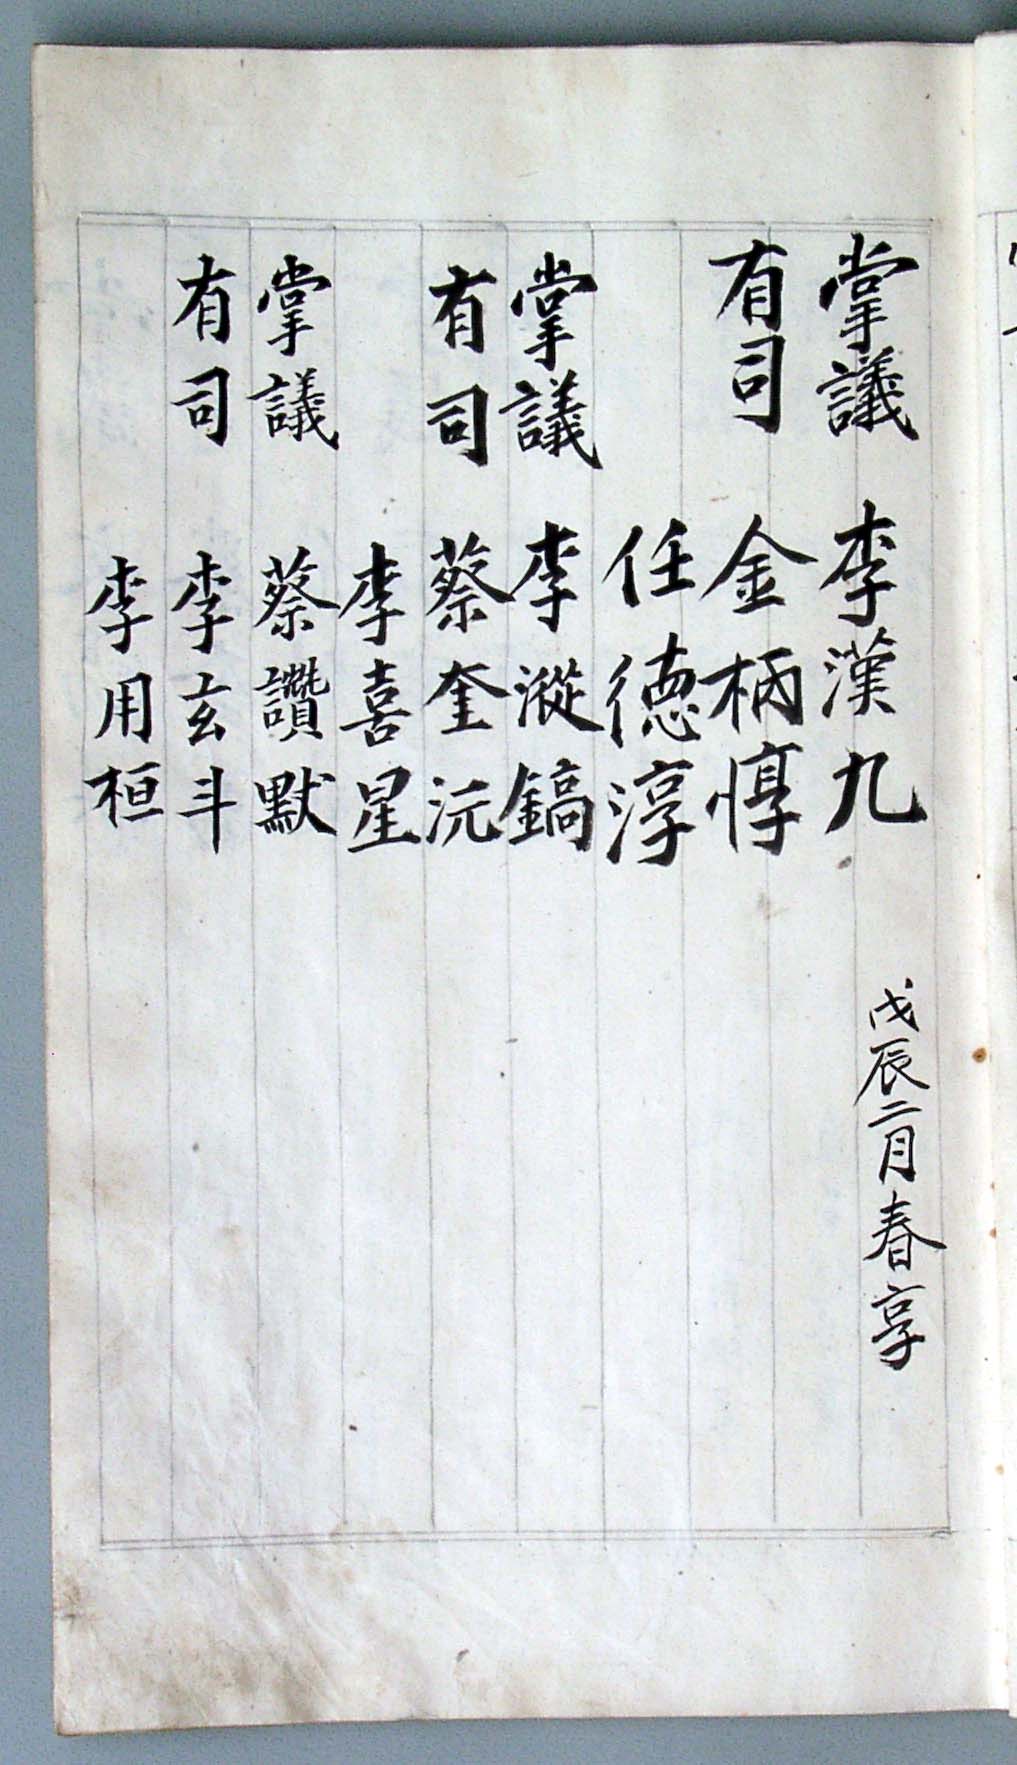 掌議 李漢九 戊辰二月春享
有司 金柄惇
任德淳
掌議 李漇鎬
有司 蔡奎沅
李喜星
掌議 蔡讚默
有司 李玄斗
李用桓